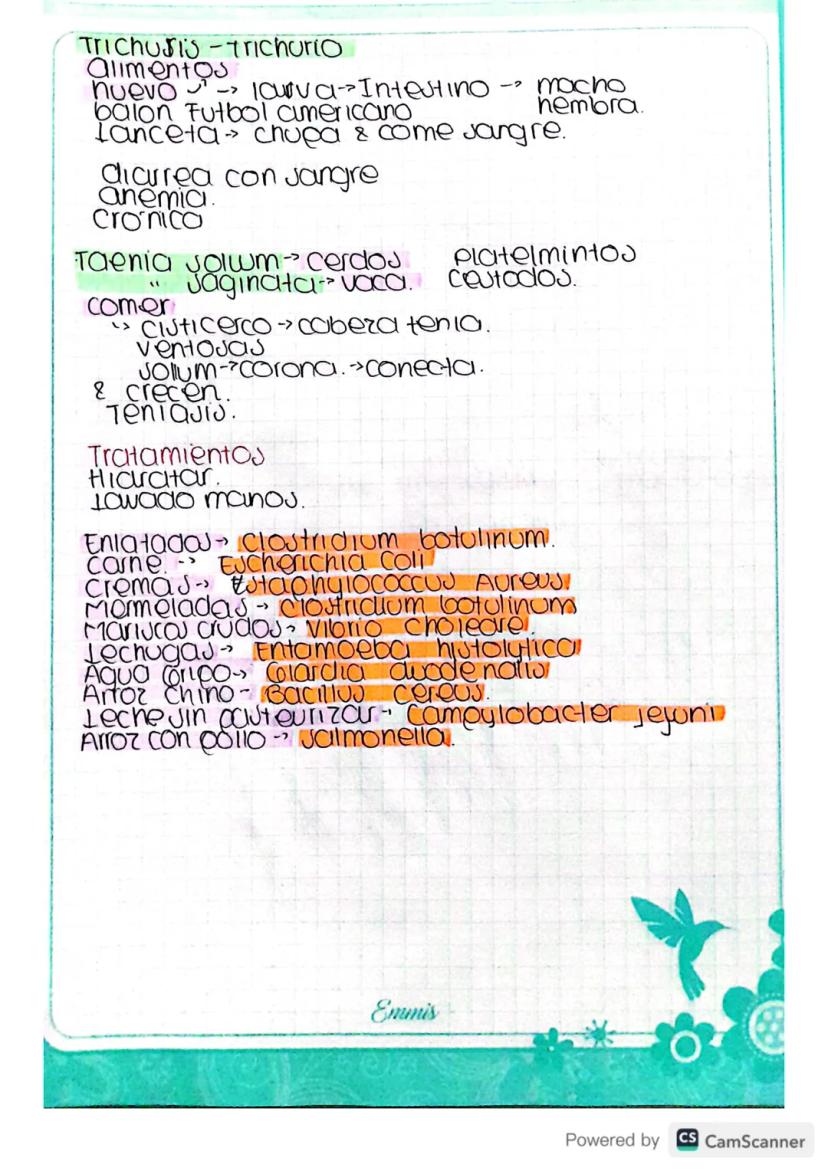 Trichuris - trichurio
alimentos
huevo ↗ -> larva -> Intestino -> macho
balon Futbol americano hembra.
Lanceta -> chupa & come sangre.
diarrea con sangre
anemia.
crónica
Taenia solium -> cerdos platelmintos
" saginata -> vaca. cestodos.
comer
↳ cisticerco -> cabeza tenia.
ventosas
solium -> corona. -> conecta.
& crecen.
Teniasis.
Tratamientos
Hidratar.
Lavado manos.
Enlatados -> Clostridium botulinum.
carne. -> Escherichia Coli
cremas -> Estaphylococcus Aureus
Mermeladas -> Clostridium botulinum
Mariscos crudos -> Vibrio choleare.
Lechugas -> Entamoeba histolytica
Agua Gripo -> Giardia duodenalis
Arroz Chino - Bacillus cereus.
Leche sin pasteurizar - Campylobacter jejuni
Arroz con pollo -> Salmonella.
Emmis
Powered by CS CamScanner